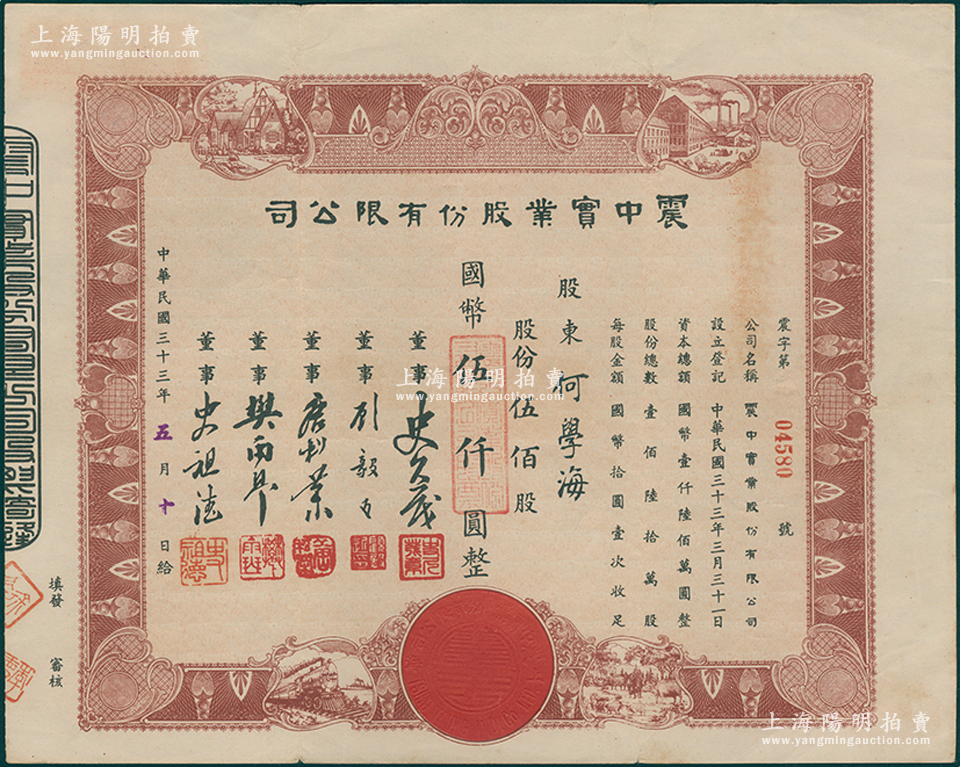 上海陽明拍賣
www.yangmingauction.com
震中實業股份有限公司
震字第 04580 號
公司名稱 震中實業股份有限公司
設立登記 中華民國三十三年三月三十一日
資本總額 國幣壹仟陸佰萬圓整
股份總數 壹佰陸拾萬股
每股金額 國幣拾圓壹次收足
股東 何學海
股份伍佰股
國幣伍仟圓整
董事 史久茂
董事
董事
董事
董事 史祖德
中華民國三十三年五月十日給
填發
審核
上海陽明拍賣
www.yangmingauction.com
上海陽明拍賣
www.yangmingauction.com